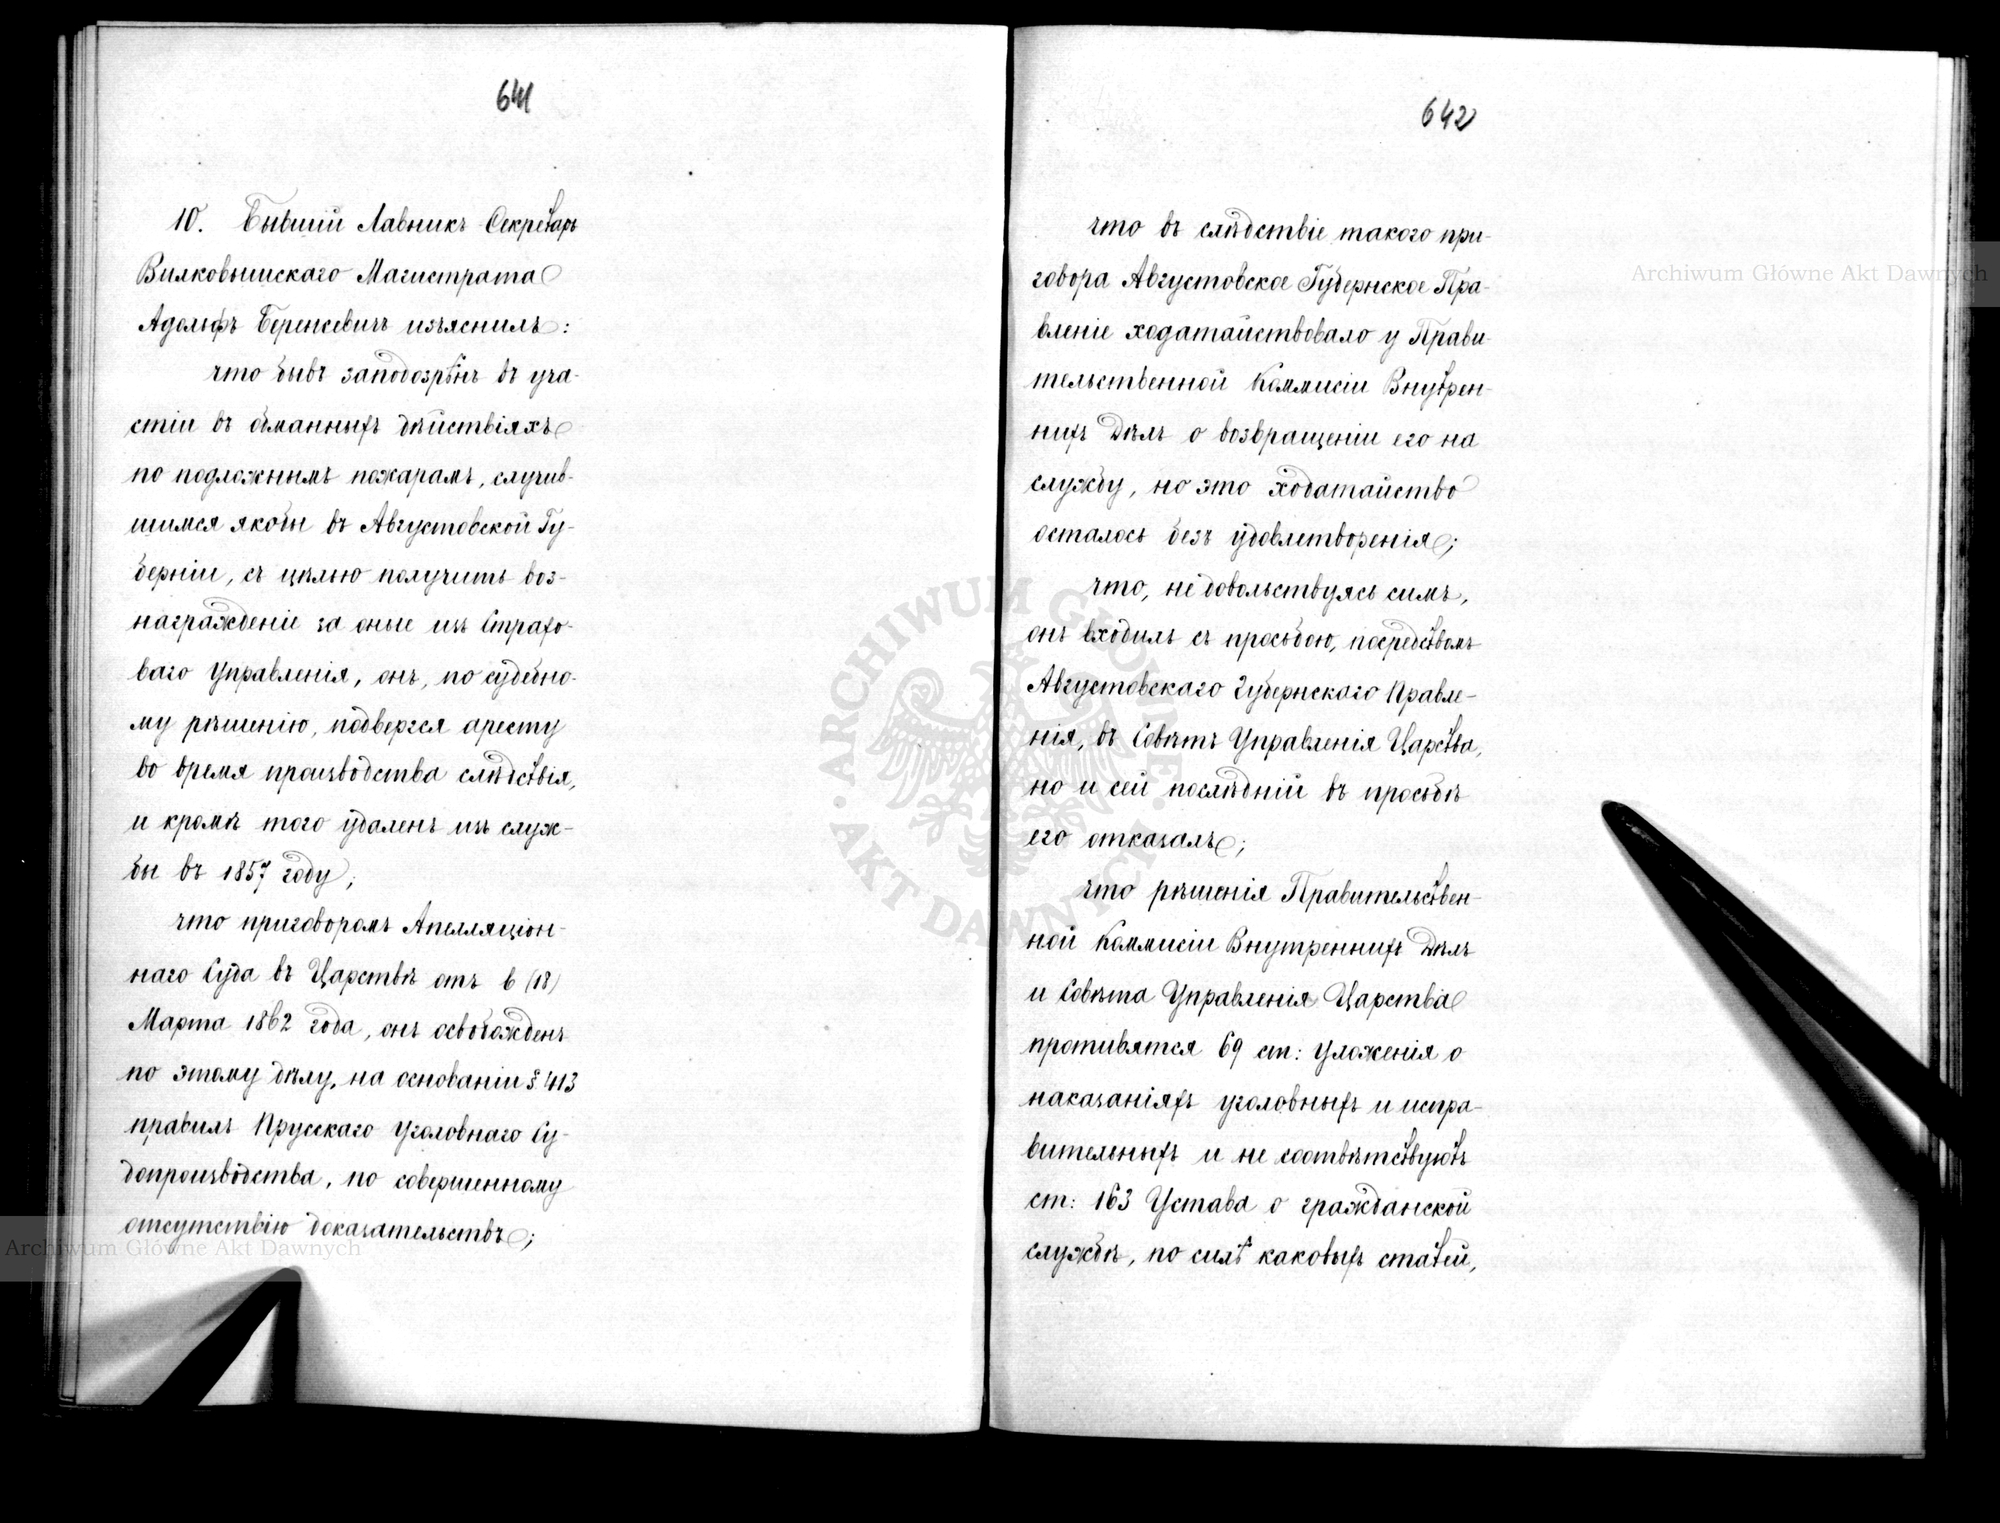 641
10. Бывшій Лавникъ Секретарь
Вилковышскаго Магистрата
Адольфъ Беренсевичъ изъяснилъ:
что бывъ заподозрѣнъ въ уча-
стіи въ обманныхъ дѣйствіяхъ
по подложнымъ пожарамъ, случив-
шимся якобы въ Августовской Гу-
берніи, съ цѣлью получить воз-
награжденіе за оные изъ Страхо-
ваго Управленія, онъ, по судебно-
му рѣшенію, подвергся аресту
во время производства слѣдствія,
и кромѣ того удаленъ изъ служ-
бы въ 1857 году;
что приговоромъ Апелляціон-
наго Суда въ Царствѣ отъ 6 (18)
Марта 1862 года, онъ освобожденъ
по этому дѣлу, на основаніи § 413
правилъ Прусскаго Уголовнаго Су-
допроизводства, по совершенному
отсутствію доказательствъ;
642
что въ слѣдствіе такого при-
говора Августовское Губернское Пра-
вленіе ходатайствовало у Прави-
тельственной Коммисіи Внутрен-
нихъ Дѣлъ о возвращеніи его на
службу, но это ходатайство
осталось безъ удовлетворенія;
что, не довольствуясь симъ,
онъ входилъ съ просьбою, посредствомъ
Августовскаго Губернскаго Правле-
нія, въ Совѣтъ Управленія Царства,
но и сей послѣдній въ просьбѣ
его отказалъ;
что рѣшенія Правительствен-
ной Коммисіи Внутреннихъ Дѣлъ
и Совѣта Управленія Царства
противятся 69 ст: Уложенія о
наказаніяхъ уголовныхъ и испра-
вительныхъ и не соотвѣтствуютъ
ст: 163 Устава о гражданской
службѣ, по силѣ каковыхъ статей,
Archiwum Główne Akt Dawnych
Archiwum Główne Akt Dawnych
ARCHIWUM GŁÓWNE AKT DAWNYCH